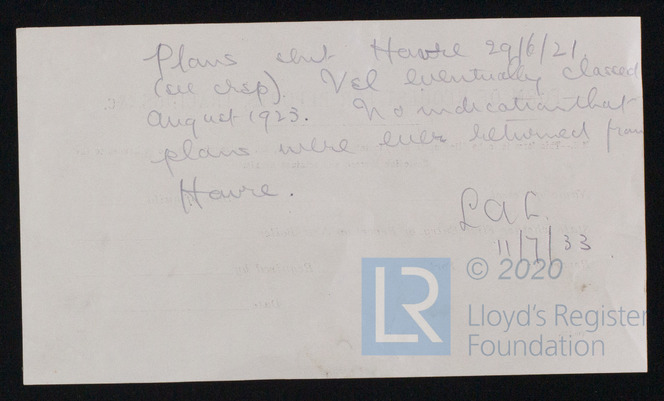 Plans sent Havre 29/6/21.
(see crsp). Vsl eventually classed
August 1923. No indication that
plans were ever returned from
Havre.
11/7/33
LR
© 2020
Lloyd's Register
Foundation